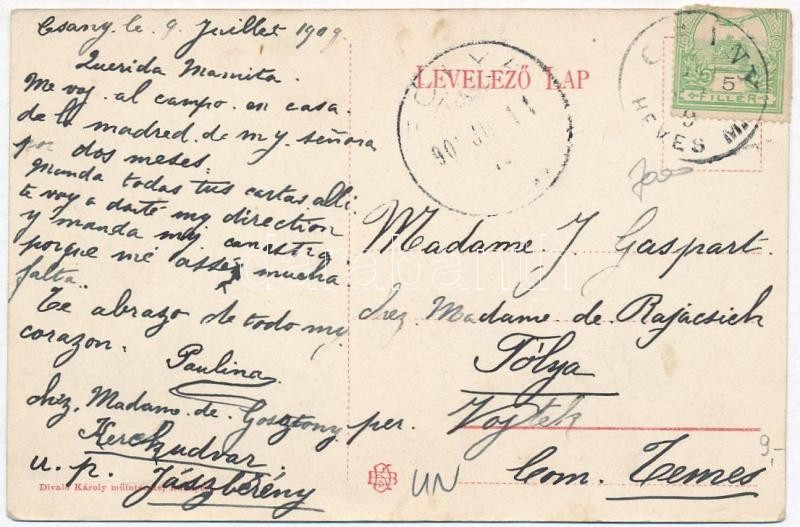 Csany. le 9 Juillet 1909.
Querida Mamita.
Me voy al campo en casa
de la madred de my señora
por dos meses.
manda todas tus cartas alli.
te voy a darte my direction
y manda my canastra
porque me asse mucha
falta.
Te abrazo de todo my
corazon.
Paulina.
chez. Madame. de Gosztony
Kerekudvar.
u. p. Jászberény
Divald Károly műintézete,
LEVELEZŐ LAP
5
FILLÉR
HEVES M
Madame J. Gaspart.
chez Madame de Rajácsich
Tólya
per. Vojtek
Com. Temes
9,-
UN
darabanth